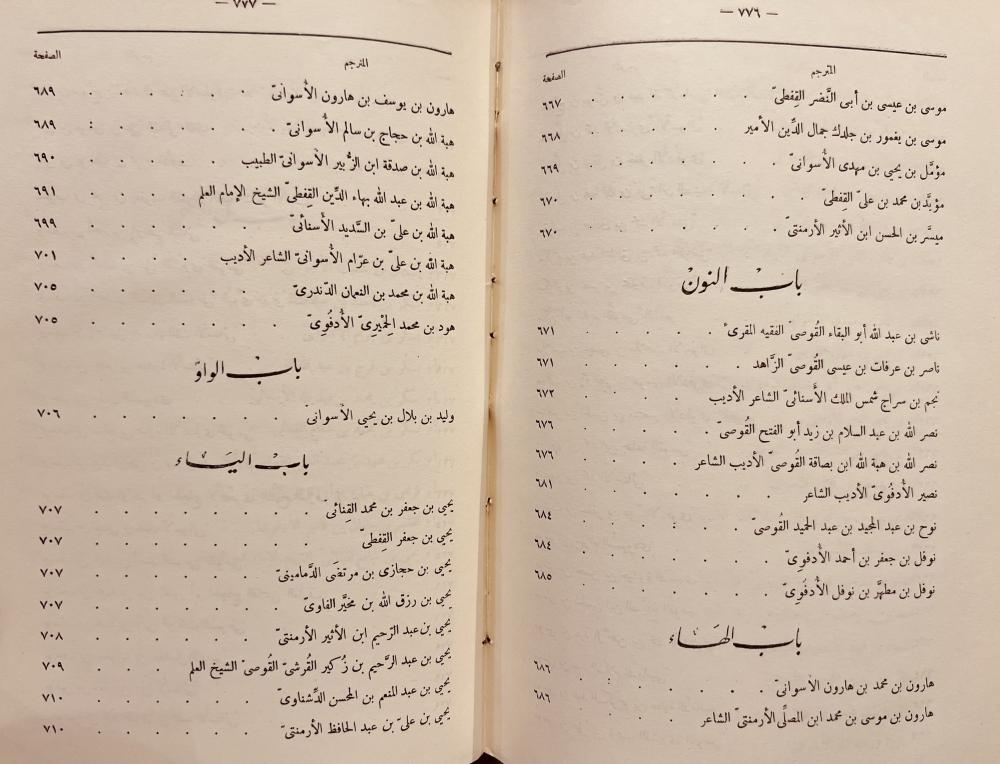 — ٧٧٦ —
المترجم الصفحة
موسى بن عيسى بن أبى النَّضر القِفطىّ . . . . . ٦٦٧
موسى بن يغمور بن جلدك جمال الدِّين الأمير . . . . . ٦٦٨
مؤمَّل بن يحيى بن مهدى الأُسوانىّ . . . . . ٦٦٩
مؤيَّد بن محمد بن علىّ القِفطىّ . . . . . ٦٧٠
ميسَّر بن الحسن ابن الأثير الأرمنتىّ . . . . . ٦٧٠
باب النون
ناشى بن عبد الله أبو البقاء القُوصىّ الفقيه المقرئ . . . . . ٦٧١
ناصر بن عرفات بن عيسى القُوصىّ الزَّاهد . . . . . ٦٧١
نجم بن سراج شمس الملك الأَسنائىّ الشاعر الأديب . . . . ٦٧٢
نصر الله بن عبد السلام بن زيد أبو الفتح القُوصىّ . . . . . ٦٧٦
نصر الله بن هبة الله ابن بصاقة القُوصىّ الأديب الشاعر . . . . ٦٧٦
نصير الأُدفُوىّ الأديب الشاعر . . . . . ٦٨١
نوح بن عبد المجيد بن عبد الحميد القُوصىّ . . . . . ٦٨٤
نوفل بن جعفر بن أحمد الأُدفوىّ . . . . . ٦٨٤
نوفل بن مطهَّر بن نوفل الأُدفُوِىّ . . . . . ٦٨٥
باب الهاء
هارون بن محمد بن هارون الأسوانىّ . . . . . ٦٨٦
هارون بن موسى بن محمد ابن المصلِّى الأرمنتىّ الشاعر . . . . ٦٨٦
— ٧٧٧ —
المترجم الصفحة
هارون بن يوسف بن هارون الأُسوانىّ . . . . . ٦٨٩
هبة الله بن حجاج بن سالم الأُسوانىّ . . . . . ٦٨٩
هبة الله بن صدقة ابن الزُّبير الأسوانىّ الطبيب . . . . . ٦٩٠
هبة الله بن عبد الله بهاء الدِّين القِفطىّ الشيخ الإمام العلم . . . . ٦٩١
هبة الله بن علىّ بن السَّديد الأَسنائىّ . . . . . ٦٩٩
هبة الله بن علىّ بن عرّام الأُسوانىّ الشاعر الأديب . . . . ٧٠١
هبة الله بن محمد بن النعمان الدّندرىّ . . . . . ٧٠٥
هود بن محمد الحِميْرِىّ الأُدفُوِىّ . . . . . ٧٠٥
باب الواوّ
وليد بن بلال بن يحيى الأسوانىّ . . . . . ٧٠٦
باب الياء
يحيى بن جعفر بن محمد القِنائىّ . . . . . ٧٠٧
يحيى بن جعفر القِفطىّ . . . . . ٧٠٧
يحيى بن حجازى بن مرتضَى الدَّمامينىّ . . . . . ٧٠٧
يحيى بن رزق الله بن مخيَّر الفاوىّ . . . . . ٧٠٧
يحيى بن عبد الرّحيم ابن الأثير الأرمنتىّ . . . . . ٧٠٨
يحيى بن عبد الرَّحيم بن زُكير القُرشىّ القُوصىّ الشيخ العلم . . . ٧٠٩
يحيى بن عبد المنعم بن المحسن الدِّشناوىّ . . . . . ٧١٠
يحيى بن علىّ بن عبد الحافظ الأرمنتىّ . . . . . ٧١٠